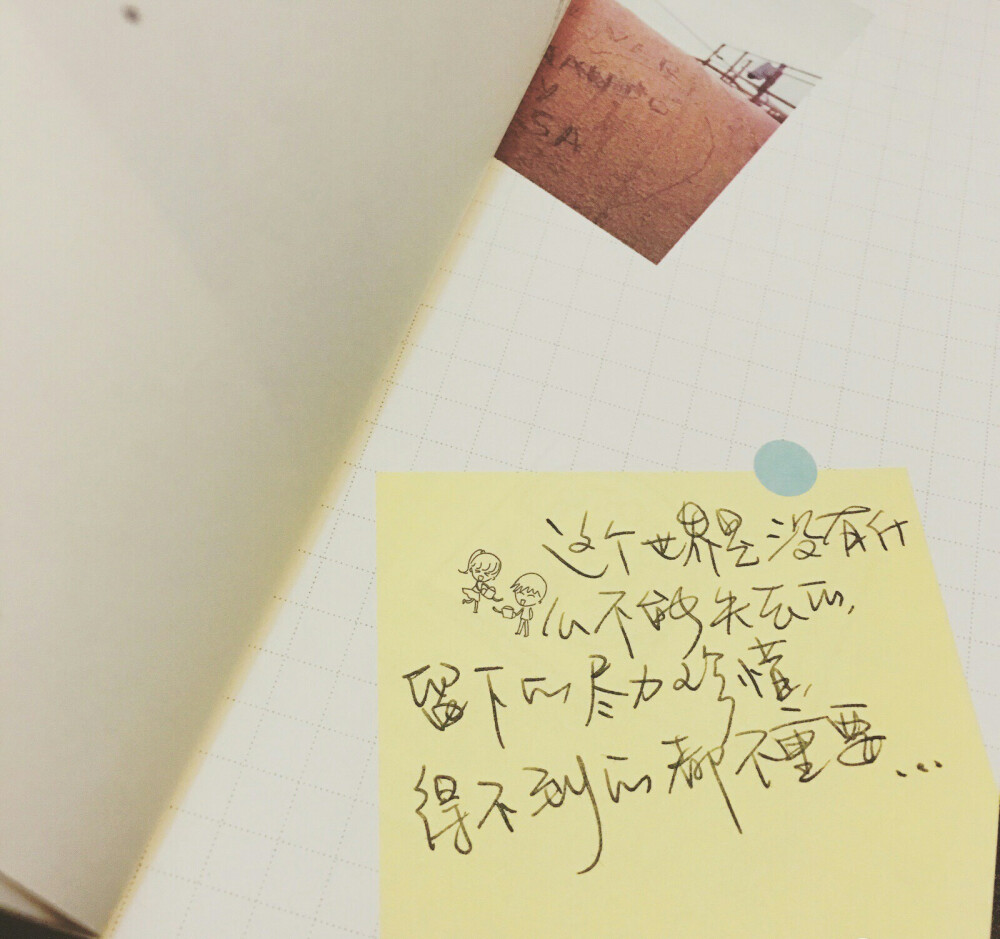 SA
这个世界是没有什
么不能失去的,
留下的尽力珍惜,
得不到的都不重要...